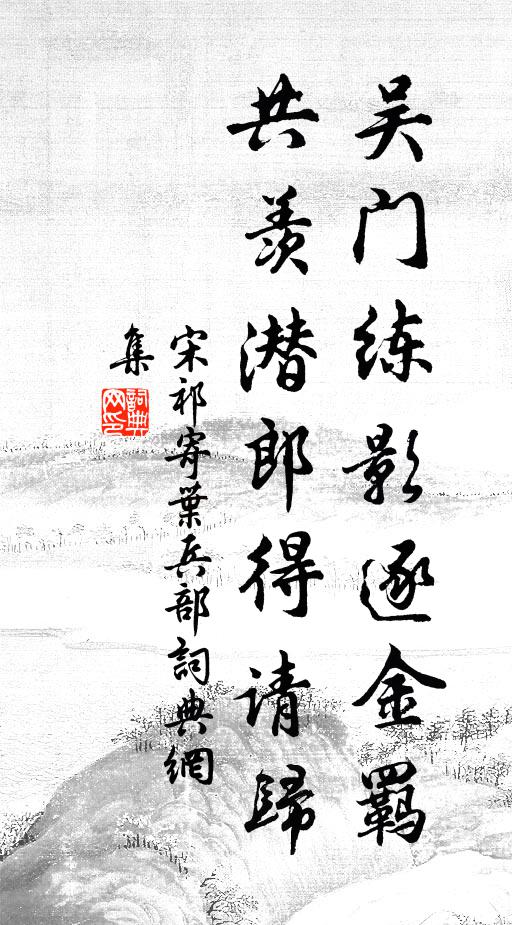 吴门练影逐金羁
共羡潜郎得请歸
宋祁寄葉兵部詞典網
集
詞典
网印